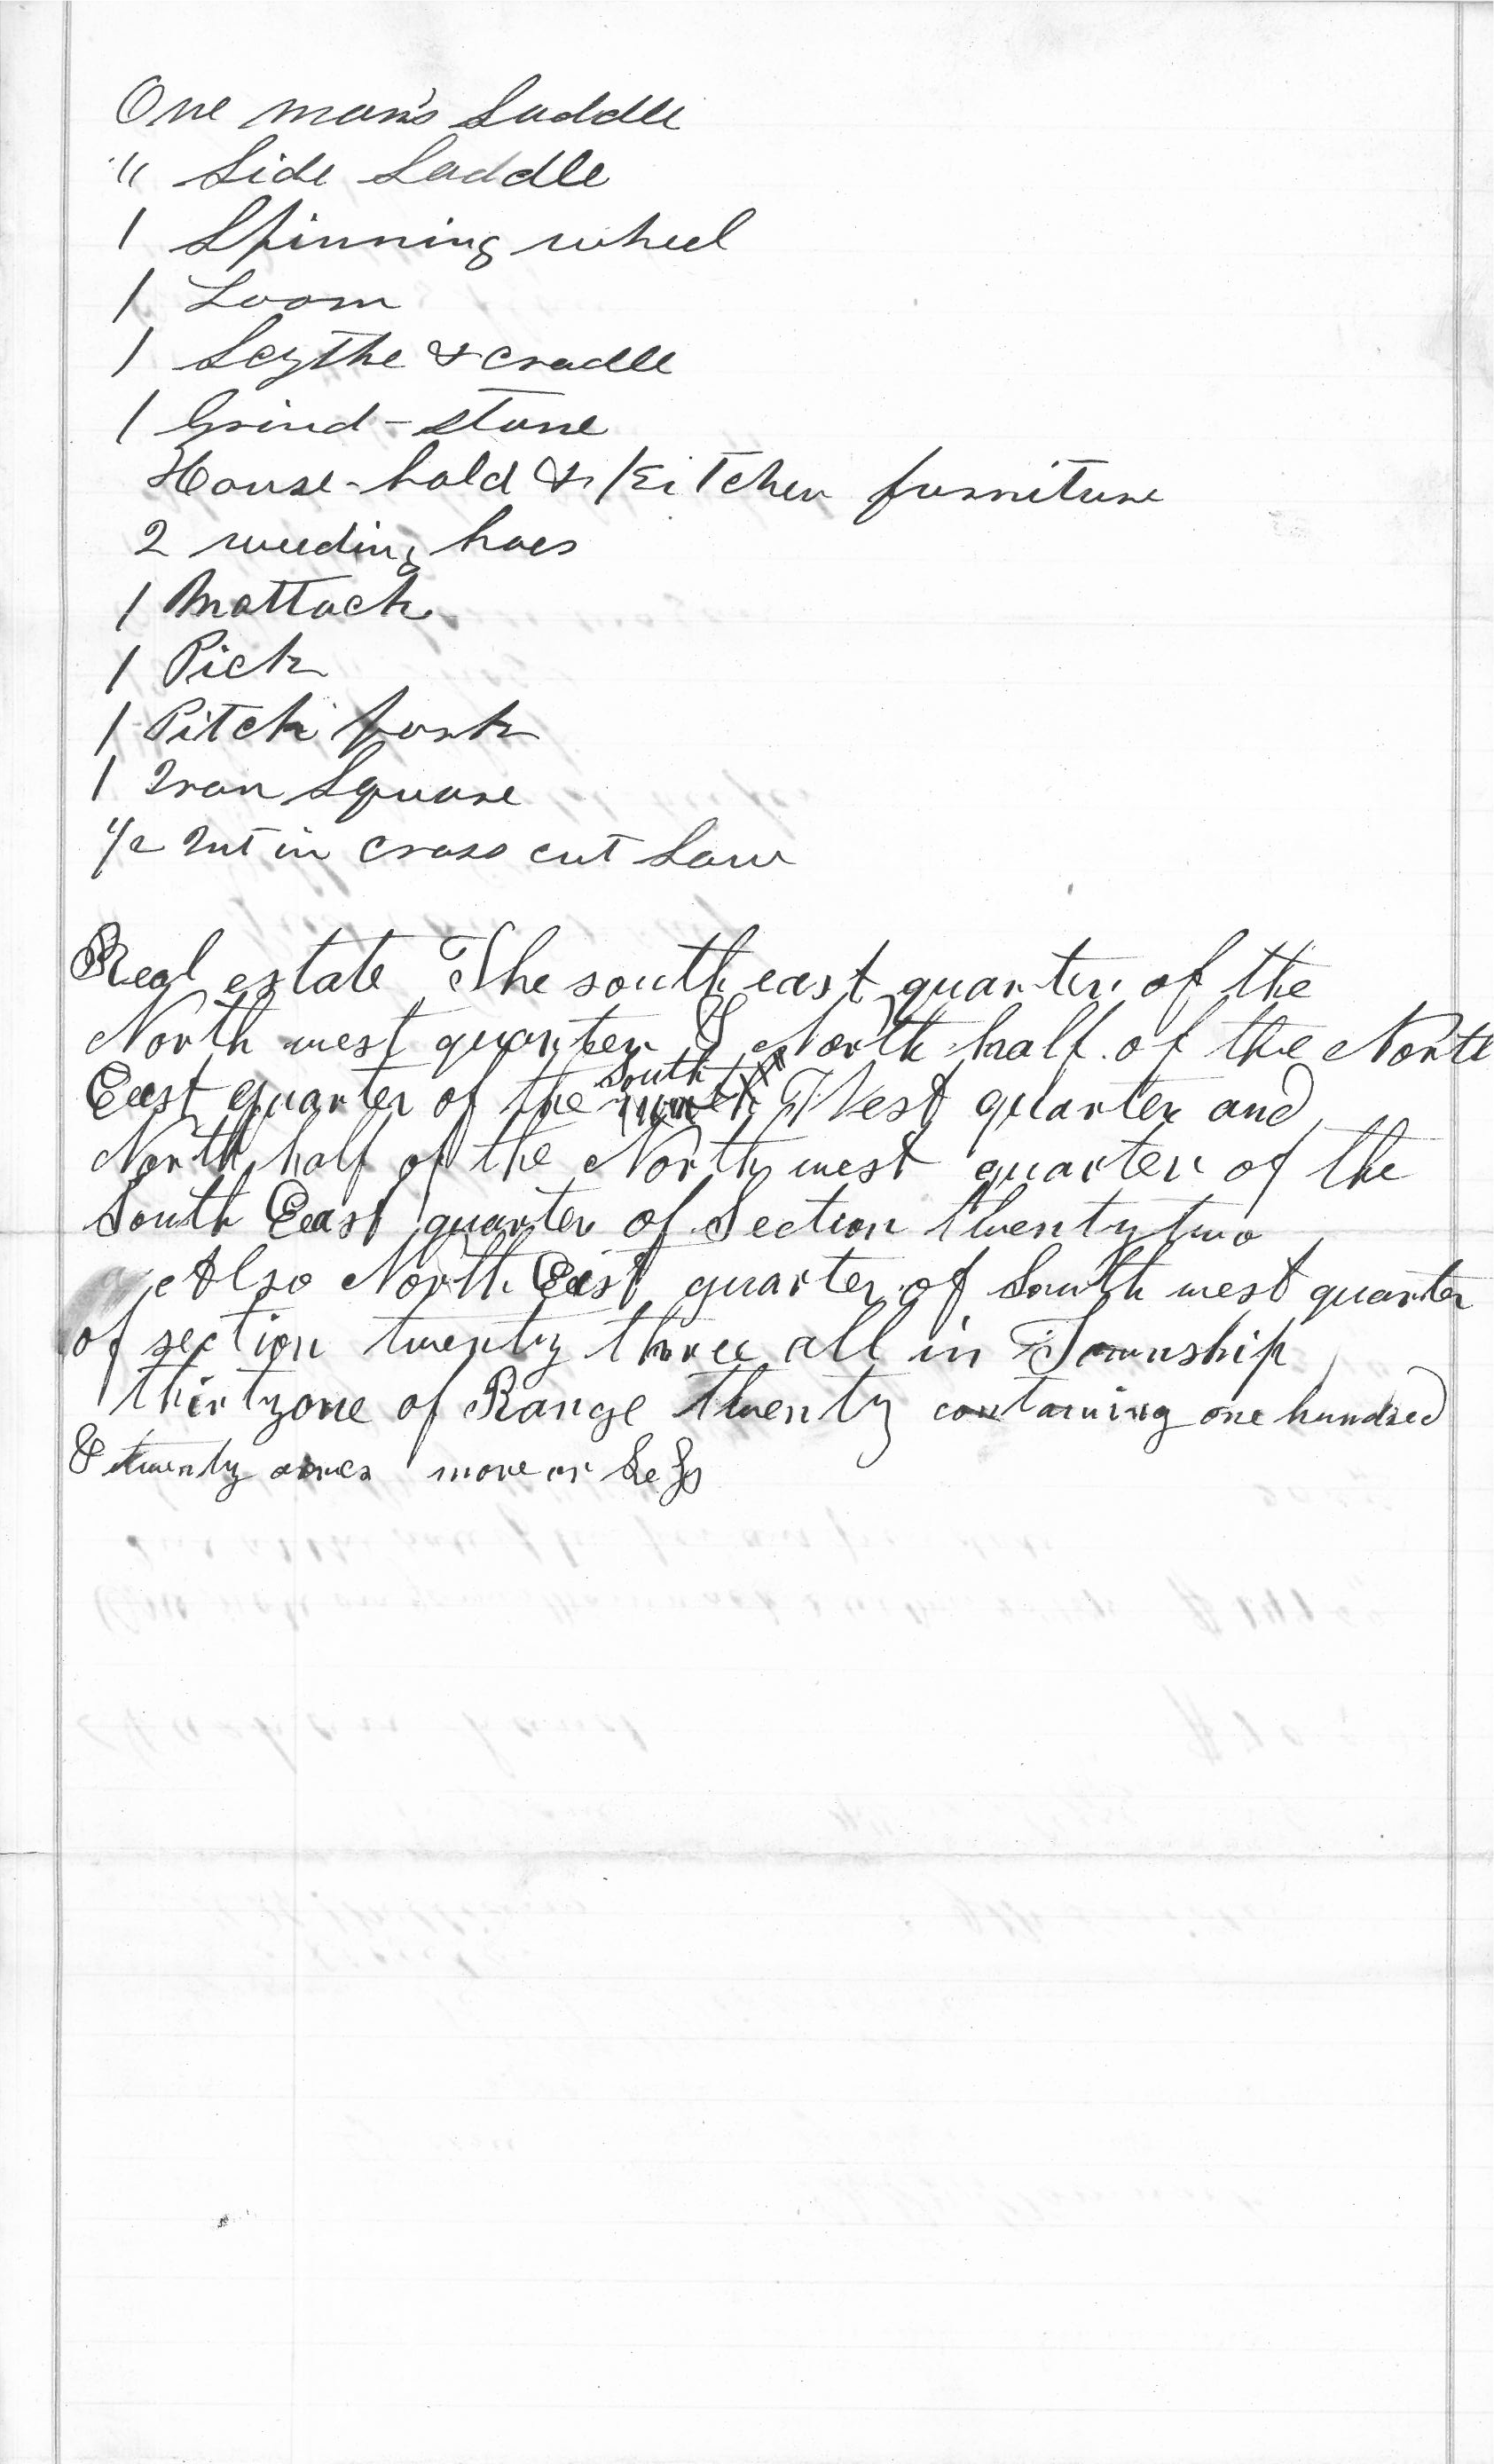 One man's Saddle
" Side Saddle
1 Spinning wheel
1 Loom
1 Scythe & cradle
1 Grind-stone
House-hold & Kitchen furniture
2 weeding hoes
1 Mattock
1 Pick
1 Pitch fork
1 Iron Square
1/2 Int in cross cut Saw
Real estate The south east quarter of the
North west quarter & North half of the North
East quarter of the South West quarter and
North half of the North west quarter of the
South East quarter of Section twenty two
Also North East quarter of South west quarter
of section twenty three all in Township
thirty one of Range twenty containing one hundred
& twenty acres more or Less